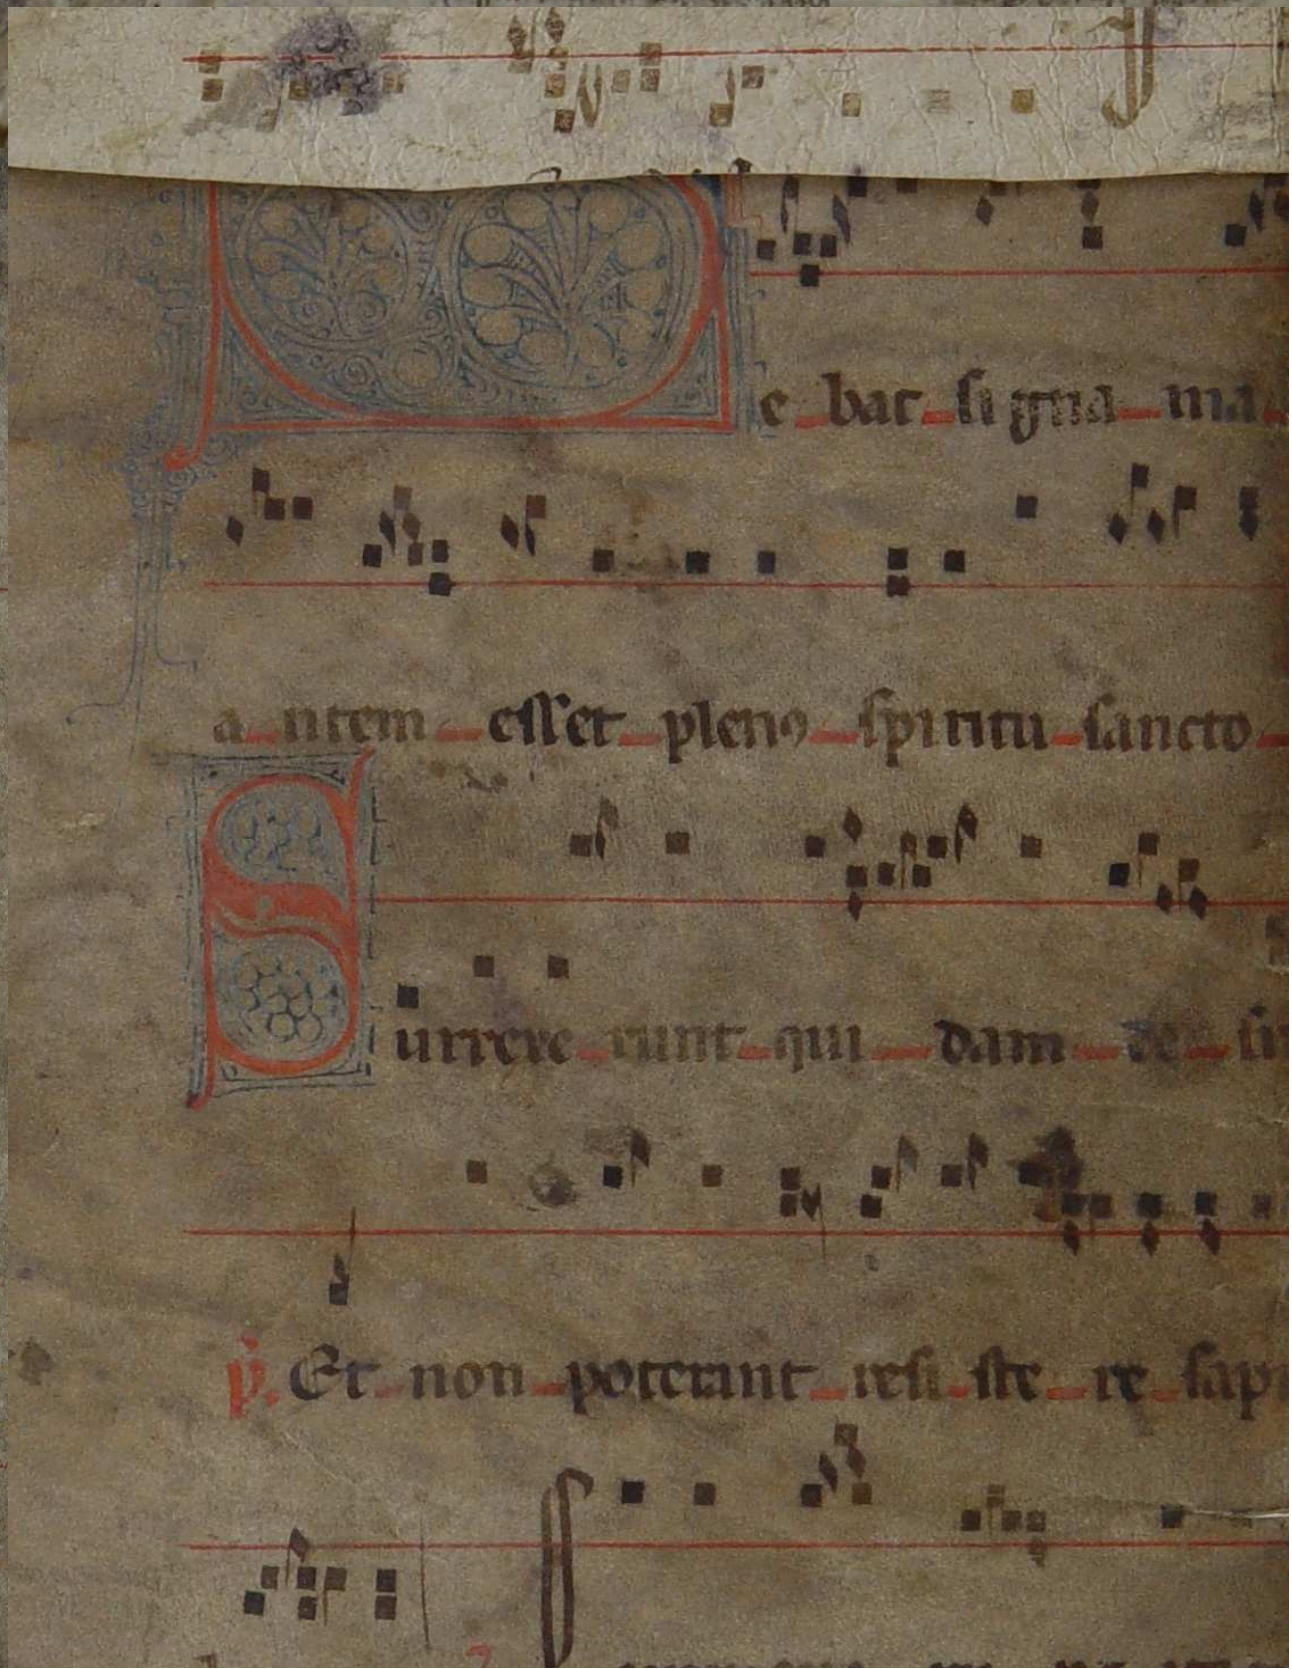 e bat signa ma
a utem esset plenꝰ spiritu sancto
S urrexe runt qui dam de
℣. Et non poterant resi ste re sapi